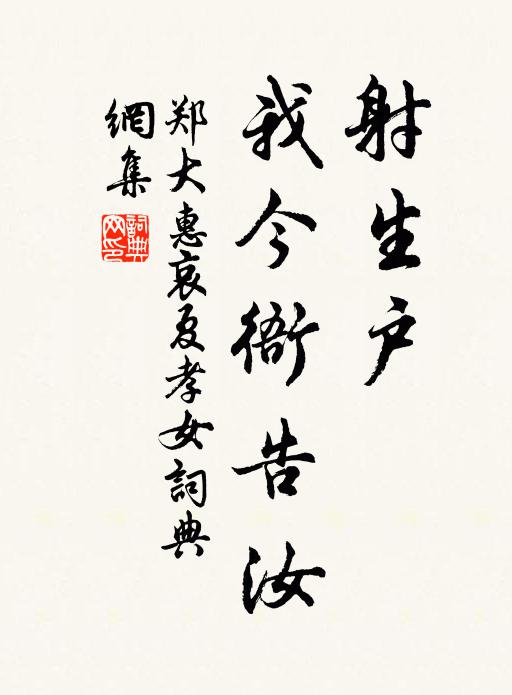 射生户
我今衙告汝
郑大惠哀夏孝女詞典
網集
詞典
网印